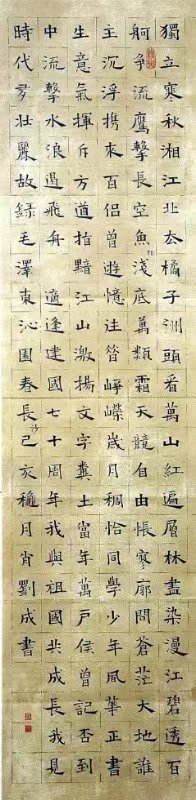 獨立寒秋湘江北去橘子洲頭看萬山紅遍層林盡染漫江碧透百
舸争流鷹擊長空魚翔淺底萬類霜天競自由悵寥廓問蒼茫大地誰
主沉浮携來百侶曾遊憶往昔崢嶸歲月稠恰同學少年風華正書
生意氣揮斥方遒指點江山激揚文字糞土當年萬戶侯曾記否到
中流擊水浪遏飛舟 適逢建國七十周年我與祖國共成長我見
時代多壯麗故録毛澤東沁園春長沙己亥穐月肖劉成書